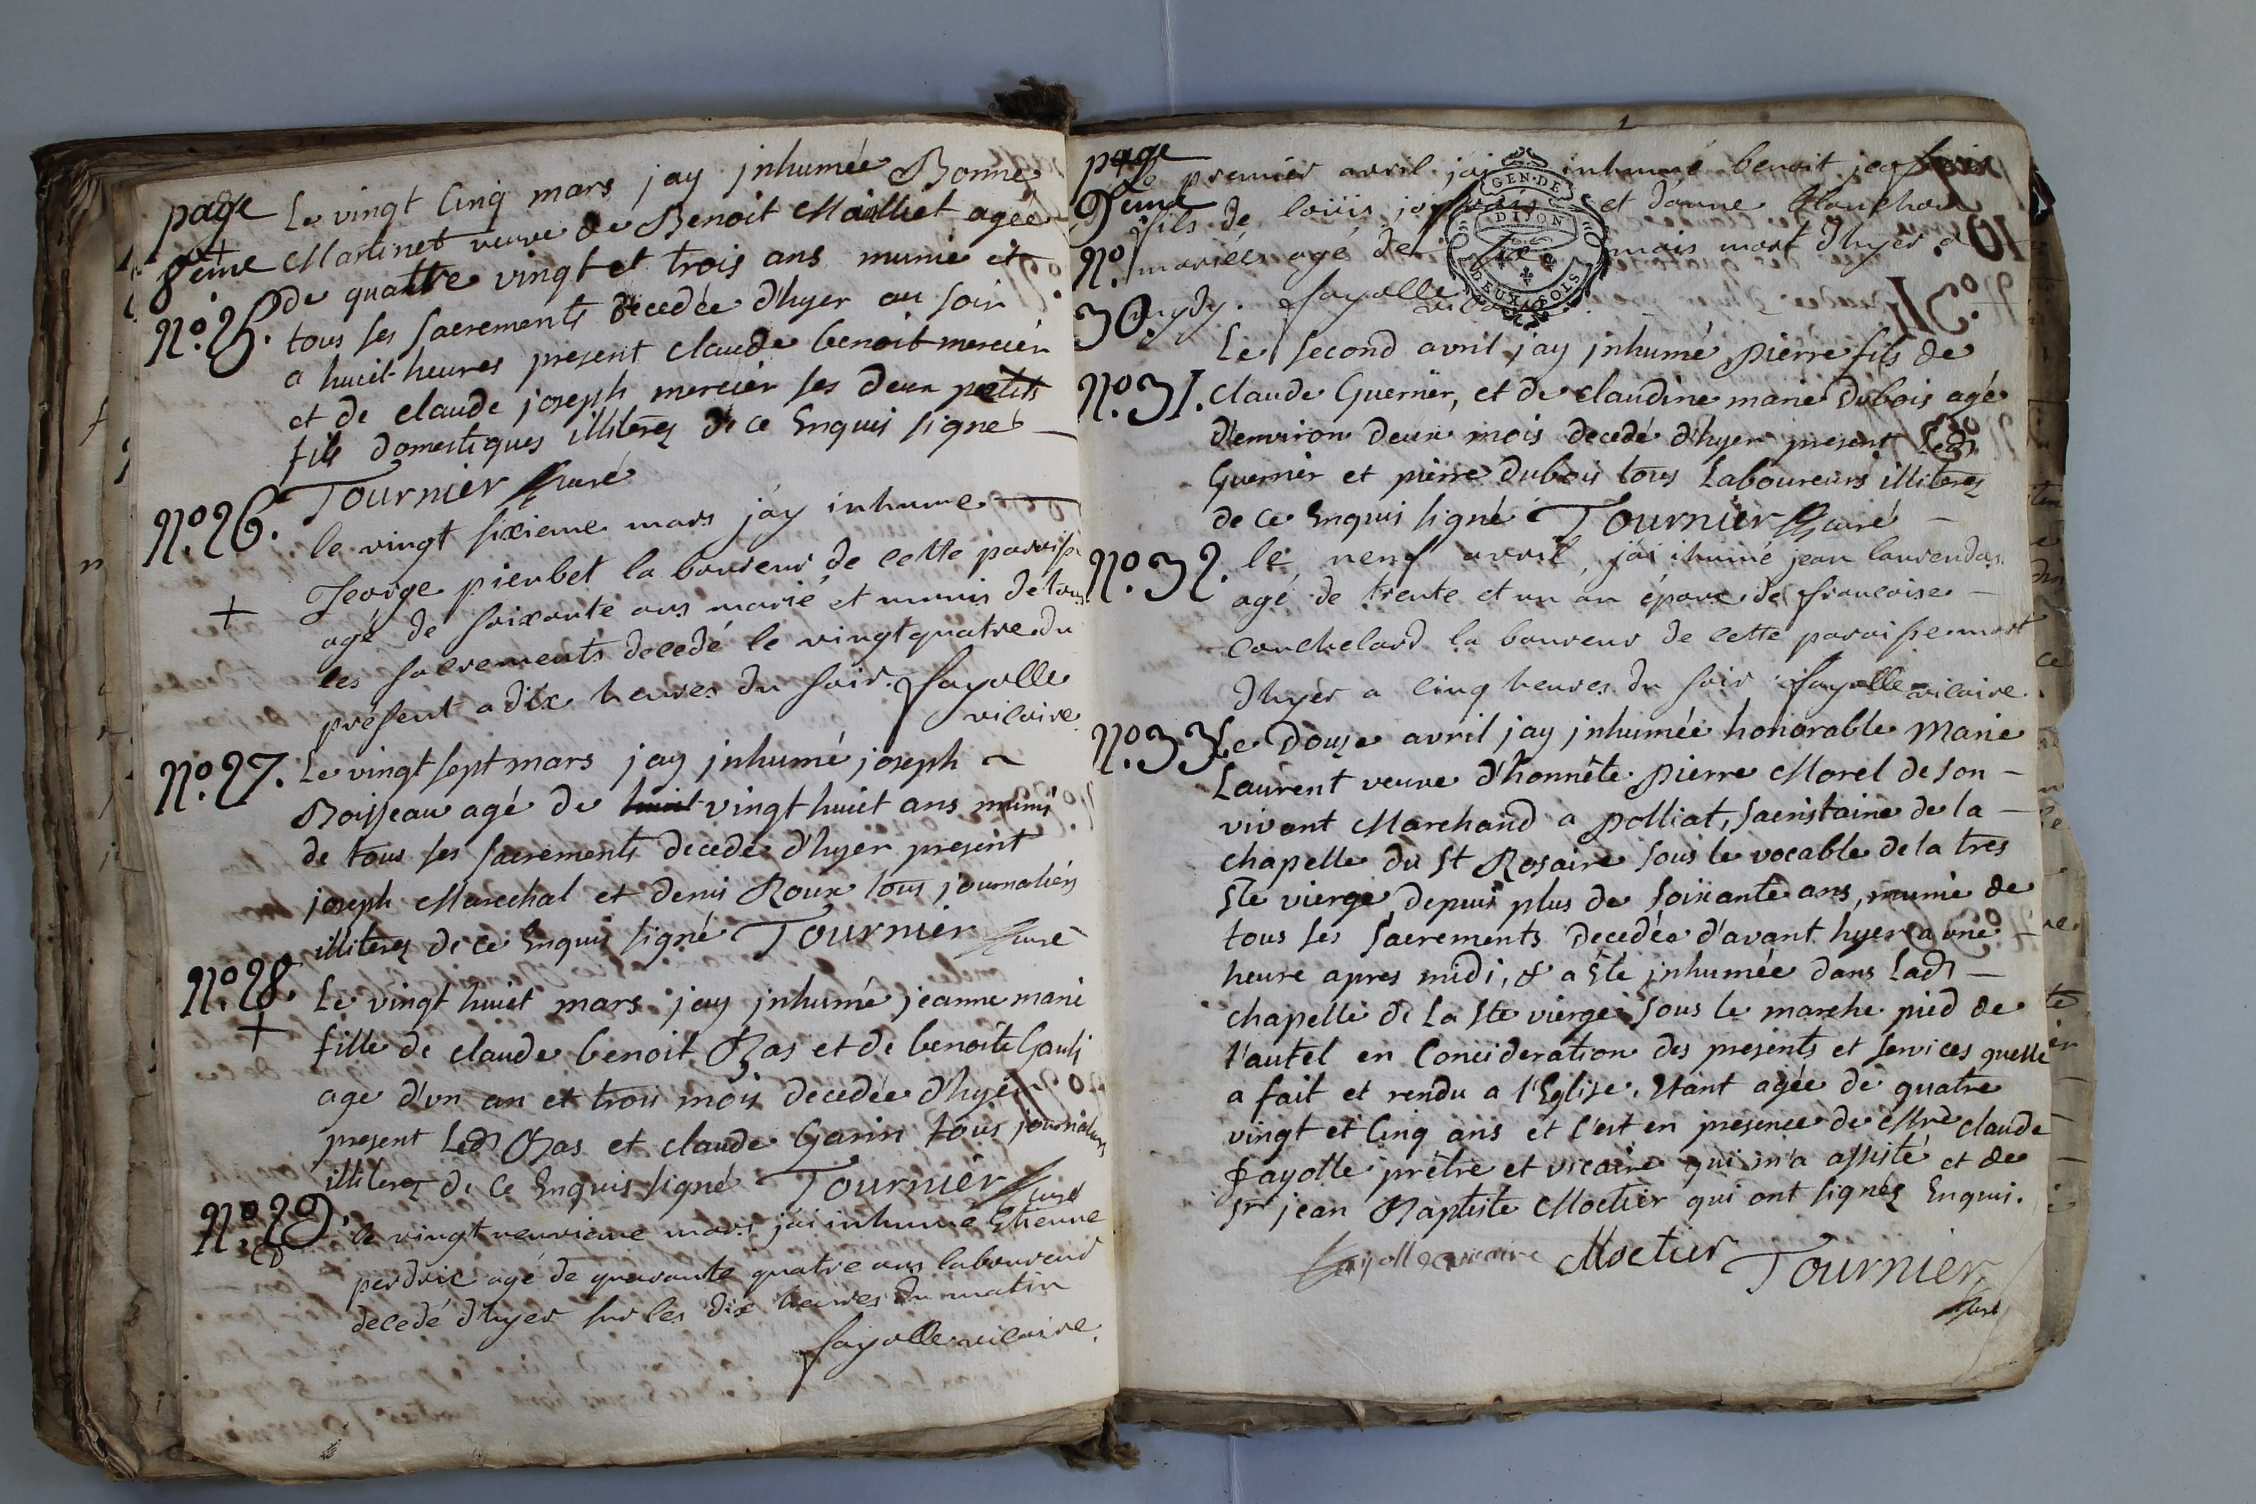 page
8eme
Le vingt Cinq mars jay jnhumée Bonne
Martinet veuve de Benoit Mailliet agée
N°. 25. de quattre vingt et trois ans munie et
tous ses sacrements decedée d'hyer au soir
a huict heures present claude benoit mercier
et de claude joseph mercier ses deux petits
fils domestiques illiterez de ce Enquis signé
Tournier Curé
N°. 26. le vingt sixieme mars j'ay inhume
George pierbet la boureur de cette paroisse
agé de soixante ans marié et munis de tous
les sacrements decedé le vingt quatre du
présent a dix heures du soir. fayolle
vicaire
N°. 27. Le vingt sept mars jay jnhumé joseph
Boisseau agé de huict vingt huict ans muni
de tous ses sacrements decedé d'hyer present
joseph Marechal et denis Roux tous journaliers
illiterez de ce Enquis signé Tournier Curé
N°. 28. Le vingt huict mars jay jnhumé jeanne marie
fille de claude benoit Bas et de benoite
age d'un an et trois mois decedée d'hyer
present Led Bas et claude Garin tous journaliers
illiterez de ce Enquis signé Tournier Curé
N°. 29. le vingt neuvieme mars j'ai inhumé Etienne
perdrix agé de quarante quatre ans laboureur
decedé d'hyer sur les dix heures du matin
fayolle vicaire.
page
9eme
Le premier avril j'ai inhumé benoit
fils de loüis et d'anne Blanchard
N°. mariés agé de mois mort d'hyer a
30. mydy. fayolle vicaire
GEN. DE
DIJON
DEUX SOLS
Le second avril jay jnhumé pierre fils de
N°. 31. claude Guerrier, et de claudine marie Dubois agé
d'environ deux mois decedé d'hyer present Led
Guerrier et pierre dubois tous Laboureurs illiterez
de ce Enquis signé Tournier Curé
N°. 32. le neuf avril, j'ai ihumé jean laurendas
agé de trente et un an époux de francoise
Conchelard la boureur de cette paroisse mort
d'hyer a cinq heures du soir fayolle vicaire
N°. 33. Le Douze avril jay jnhumée honorable Marie
Laurent veuve d'honnête Pierre Morel de son
vivant Marchand a Polliat, sacristaine de la
chapelle du St Rosaire sous le vocable de la tres
Ste vierge depuis plus de soixante ans, munie de
tous ses sacrements decedée d'avant hyer a une
heure apres midi, & a Eté jnhumée dans lad
chapelle de La Ste vierge sous le marche pied de
l'autel en Consideration des presents et services quelle
a fait et rendu a l'Eglise. Etant agée de quatre
vingt et Cinq ans et c'est en presence de Mre claude
fayolle prêtre et vicaire qui m'a assisté et de
Sr jean Baptiste Moctier qui ont signéz Enquis.
fayolle vicaire Moctier Tournier
Curé